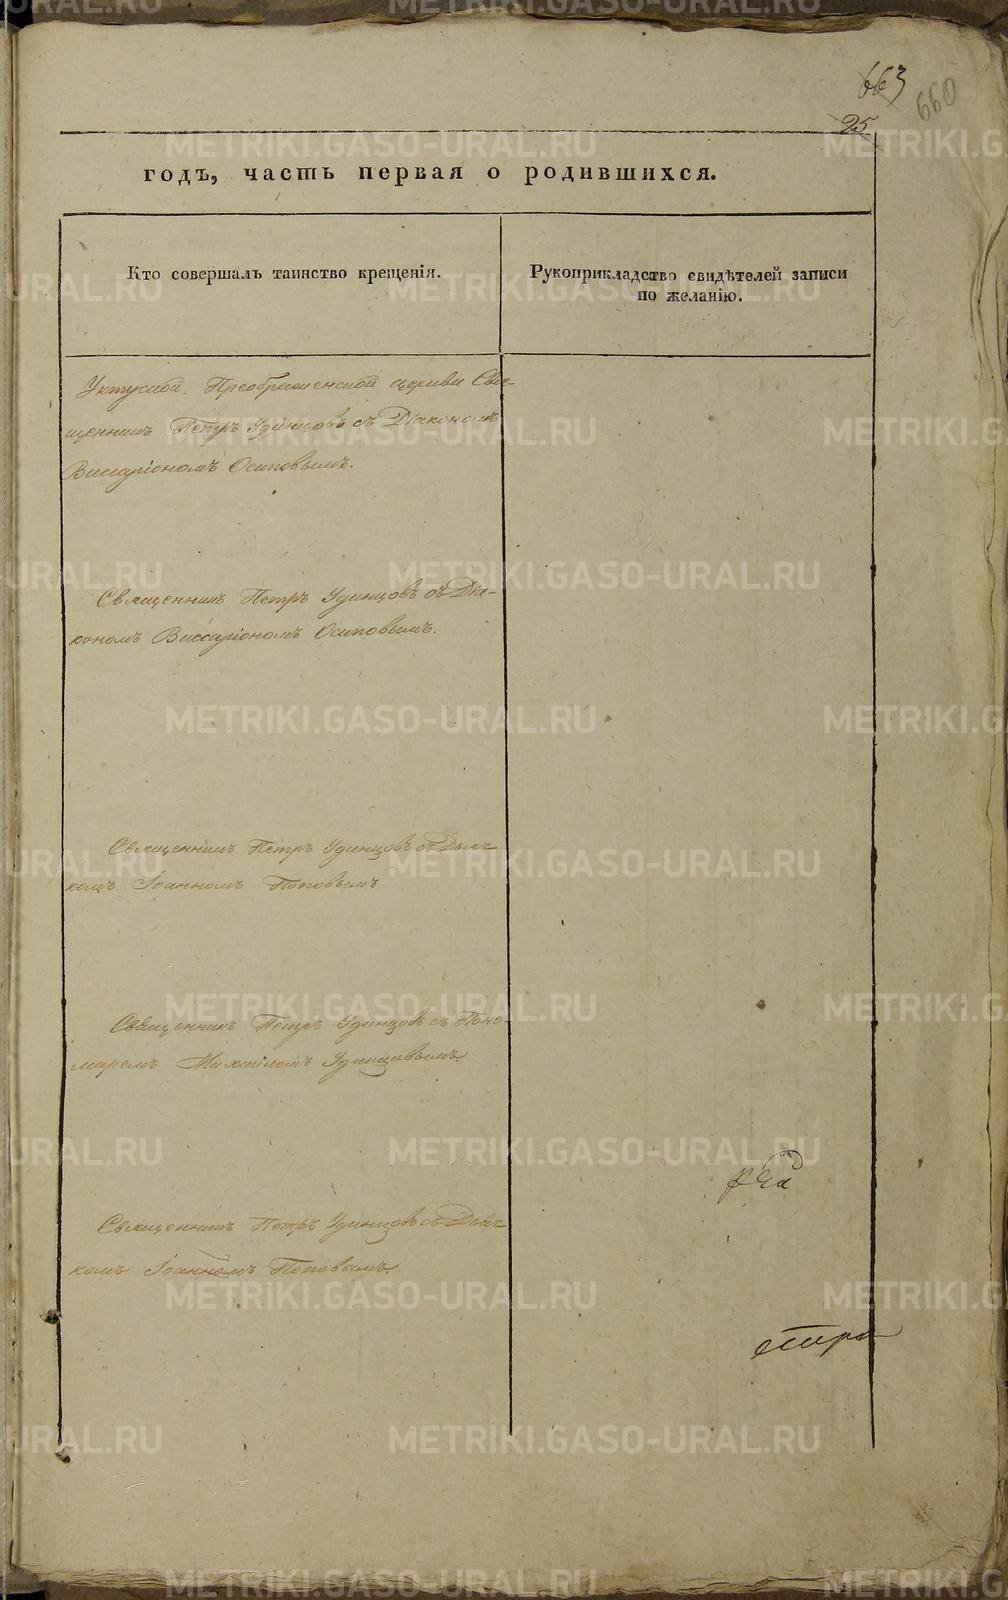 663
660
25
годъ, часть первая о родившихся.
Кто совершалъ таинство крещенія.
Рукоприкладство свидѣтелей записи
по желанію.
Уктусской Преображенской церкви Свя-
щенникъ Петръ Удинцовъ съ Діакономъ
Виссаріономъ Осиповымъ.
Священникъ Петръ Удинцовъ съ Діа-
кономъ Виссаріономъ Осиповымъ.
Священникъ Петръ Удинцовъ съ Дьяч-
комъ Іоанномъ Поповымъ
Священникъ Петръ Удинцовъ съ Поно-
маремъ Михаиломъ Удинцовымъ.
Священникъ Петръ Удинцовъ съ Дьяч-
комъ Іоанномъ Поповымъ.
METRIKI.GASO-URAL.RU